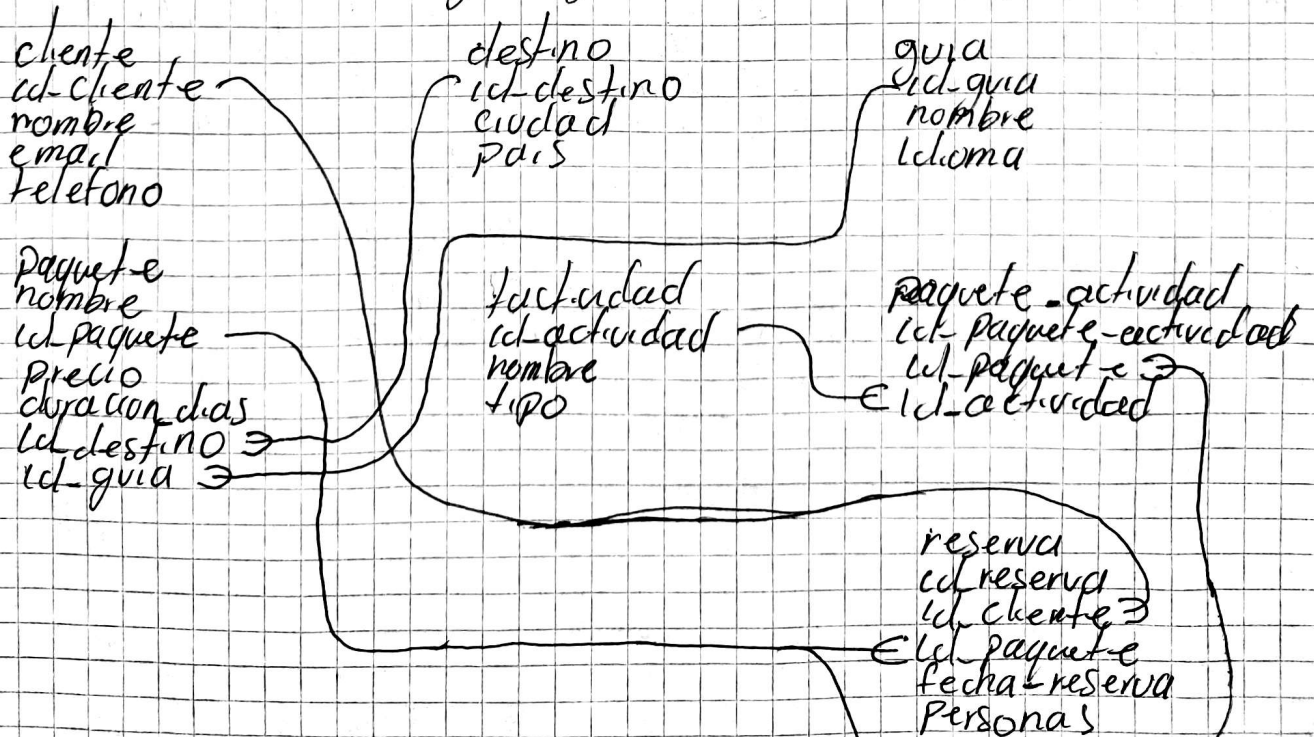 cliente
id_cliente
nombre
email
telefono
destino
id_destino
ciudad
pais
guia
id_guia
nombre
idioma
paquete
nombre
id_paquete
precio
duracion_dias
id_destino
id_guia
tactividad
id_actividad
nombre
tipo
paquete_actividad
id_paquete_actividad
id_paquete
id_actividad
reserva
id_reserva
id_cliente
id_paquete
fecha_reserva
personas